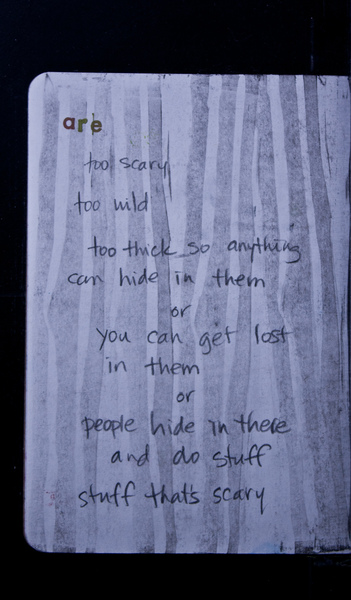 are
too scary
too wild
too thick so anything
can hide in them
or
you can get lost
in them
or
people hide in there
and do stuff
stuff thats scary